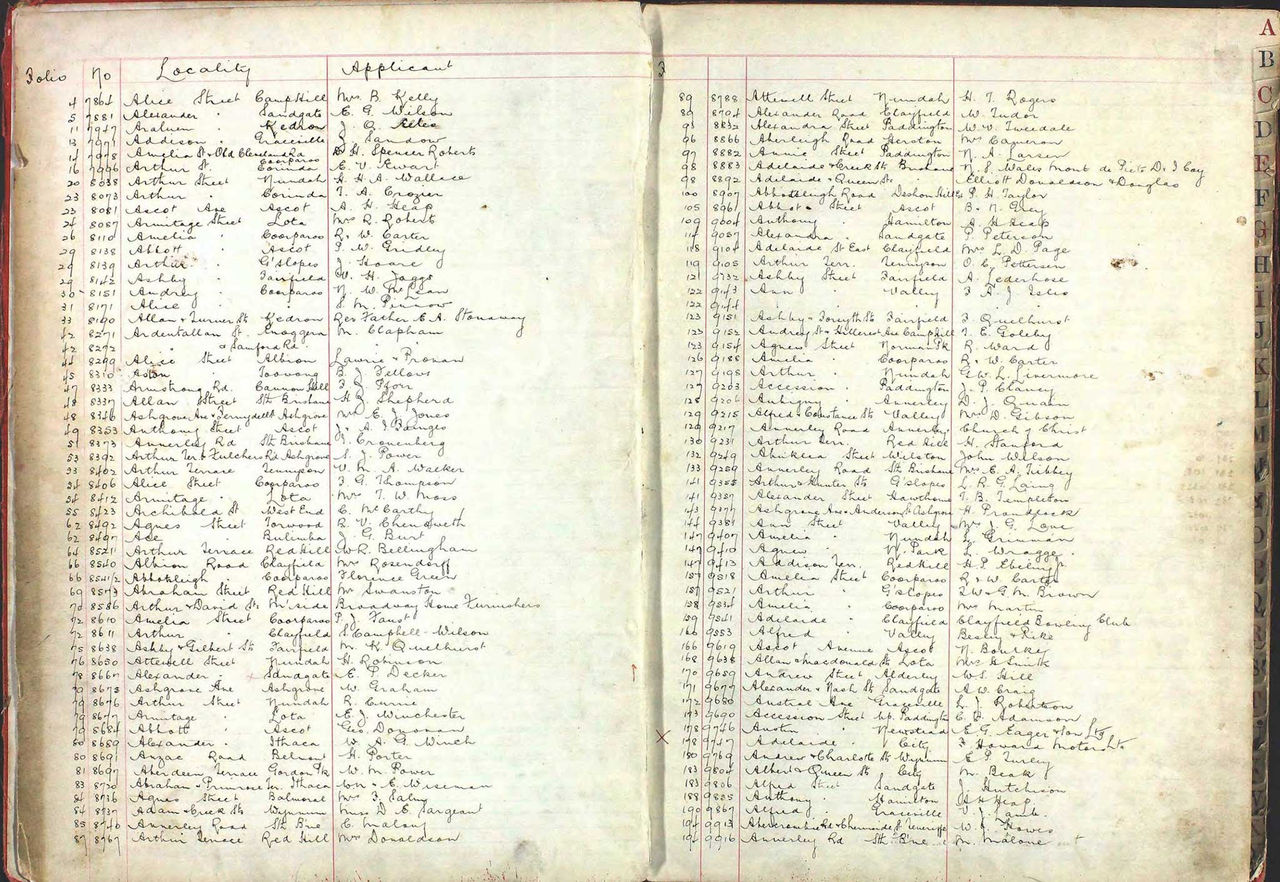 Folio No Locality Applicant
4 7864 Alice Street Camp Hill Mrs B. Kelly
5 7881 Alexander " Sandgate E. G. Wilson
11 7947 Araluen " Kedron J. A.
13 7977 Addison " Graceville J. Sandow
14 7978 Amelia St & Old Cleveland Rd Coorparoo H. Spencer Roberts
16 7996 Arthur St Corinda E. V. Ewart
20 8038 Arthur Street Nundah H. H. A. Wallace
23 8073 Arthur " Corinda T. A. Crozier
23 8081 Ascot Ave Ascot A. H. Heap
24 8087 Armitage Street Lota Mrs R. Roberts
26 8110 Amelia " Coorparoo R. W. Carter
29 8138 Abbott " Ascot P. W. Gridley
29 8139 Arthur " G'slopes J. Hoare
29 8142 Ashby " Fairfield W. H. Jaggs
30 8151 Audrey " Coorparoo N. W. McLean
31 8171 Alice " S. M. Pinnow
33 8190 Allan & Turner Sts Kedron Rev Father E. A. Stonaway
42 8271 Ardentallan St Enoggera M. Clapham
42 8272 " & Samford Rd " "
44 8299 Alice Street Albion Lawrie & Pronan
45 8310 Aston " Toowong B. J. Fellows
47 8333 Armstrong Rd. Cannon Hill F. J. Pforr
48 8337 Allan Street Sth Brisbane H. J. Shepherd
48 8346 Ashgrove Ave & Ferny Ashgrove Mrs E. J. Jones
49 8353 Anthony Street Ascot J. A. J.
51 8373 Annerley Rd Sth Brisbane J. Cronenberg
53 8392 Arthur Terr & Fulchers Rd Ashgrove S. J. Power
53 8402 Arthur Terrace Tennyson V. M. A. Walker
54 8406 Alice Street Coorparoo F. G. Thompson
54 8412 Armitage " Lota Mrs T. W. Moss
55 8423 Archibald St West End C. McCarthy
62 8492 Agnes Street Torwood R. V. Chenoweth
62 8497 " Bulimba J. G. Burt
64 8521 Arthur Terrace Red Hill W. R. Bellingham
66 8540 Albion Road Clayfield Mrs Rosendorff
66 8541/2 Abbotsleigh " Coorparoo Florence Green
69 8573 Abraham Street Red Hill Mr Swanston
70 8586 Arthur & David St. M'side Broadway Home Furnishers
72 8610 Amelia Street Coorparoo P. J. Faust
72 8611 Arthur " Clayfield S. Campbell-Wilson
75 8638 Ashby & Gilbert Sts Fairfield M. K. Quelhurst
76 8650 Attewell Street Nundah H. Robinson
78 8667 Alexander " Sandgate E. P. Decker
79 8673 Ashgrove Ave Ashgrove W. Graham
79 8676 Arthur Street Nundah R. Currie
79 8677 Armitage " Lota E. J. Winchester
79 5684 Abbott " Ascot Geo Donovan
80 8689 Alexander " Ithaca W. A. G. Winch
80 8691 Anzac Road Belmont H. Porter
81 8697 Aberdeen Terrace Gordon Pk W. M. Power
83 8720 Abraham & Primrose Ter. Ithaca Wm & E. Wiseman
84 8736 Agnes Street Balmoral Mrs F. Salmy
84 8737 Adam & Creek Sts Wynnum Miss D. E. Sargeant
85 8740 Annerley Road Sth Bne C. Malony
87 8767 Arthur Terrace Red Hill Mrs Donaldson
3
89 8788 Attewell Street Nundah H. T. Rogers
89 8794 Alexander Road Clayfield W. Tudor
93 8832 Alexandra Street Paddington W. V. Tweedale
96 8866 Aberleigh Road Herston Mrs Cameron
97 8882 Annie Street Paddington N. A. Larsen
98 8883 Adelaide & Creek Sts Brisbane N. S. Wales Mont de Piete D. I Coy
98 8892 Adelaide & Queen Sts " Elliott Donaldson & Douglas
100 8907 Abbottsleigh Road Dashon Hills P. H. Taylor
105 8961 Abbott Street Ascot B. N. Grey
109 9004 Anthony " Hamilton A. H. Heap
114 9057 Alexandra " Sandgate P. Peterson
118 9104 Adelaide St East Clayfield Mrs L. D. Page
119 9105 Arthur Terr. Tennyson O. C. Pettersen
121 9132 Ashby Street Fairfield A. Cederhose
122 9143 Ann " Valley F. A. J
122 9144 " " " "
123 9151 Ashby & Forsyth Sts Fairfield F. Quelhurst
123 9152 Audrey St & Hillcrest Ave Camp Hill T. E. Goleby
123 9154 Agnew Street Norman Pk R. Ward
126 9188 Amelia " Coorparoo R. W. Carter
127 9198 Arthur " Nundah G. W. L. Livermore
127 9203 Accession " Paddington J. P. Claney
128 9206 Aubigny " Annerley D. J. Quain
129 9215 Alfred & Constance Sts Valley Mrs D. Gibson
129 9217 Annerley Road Annerley Church of Christ
130 9231 Arthur Terr. Red Hill H. Stanford
132 9249 Street Wilston John Wilson
133 9259 Annerley Road Sth Brisbane Mrs E. A. Tibbey
141 9355 Arthur & Hunter Sts G'slopes L. R. G. Laing
141 9357 Alexander Street Hawthorne T. B. Templeton
143 9377 Ashgrove Ave & Anderson St Ashgrove H. Prandleck
144 9381 Ann Street Valley Mrs J. G. Lane
147 9407 Amelia " Nundah Grinman
147 9410 Agnew " N. Park L. Wragge
147 9413 Addison Terr. Red Hill H. P. Ebeling
157 9518 Amelia Street Coorparoo R. W. Carter
157 9521 Arthur " G'slopes S. W. & G. M. Brown
158 9534 Amelia " Coorparoo Mrs Martin
159 9541 Adelaide " Clayfield Clayfield Bowling Club
160 9553 Alfred " Valley Besley & Pike
166 9619 Ascot Avenue Ascot N. Boulkey
168 9638 Allan & Macdonald Sts Lota Mrs G. Smith
170 9659 Andrew Street Alderley W. S. Hill
171 9677 Alexander & Nash Sts Sandgate A. W. Craig
172 9680 Austral Ave Graceville L. J. Robertson
173 9690 Accession Street Up. Paddington E. H. Adamson
178 9746 Austin " Newstead E. G. Eager & Son Ltd
178 9747 Adelaide " City F. Howard Motors Ltd
180 9769 Andrew & Charlotte Sts Wynnum E. P. Turley
183 9804 Albert & Queen Sts City M. Beak
183 9806 Alfred Street Sandgate J. Hutchison
188 9855 Anthony " Hamilton A. H. Heap
190 9867 Alfred " Graceville V. J. Park
194 9913 Abercrombie & Chermside St Teneriffe W. J. Howes
194 9916 Annerley Rd Sth Bne M. Malone
A
B
C
D
E
F
G
H
I
J
K
L
M
N
O
P
Q
R
S
T